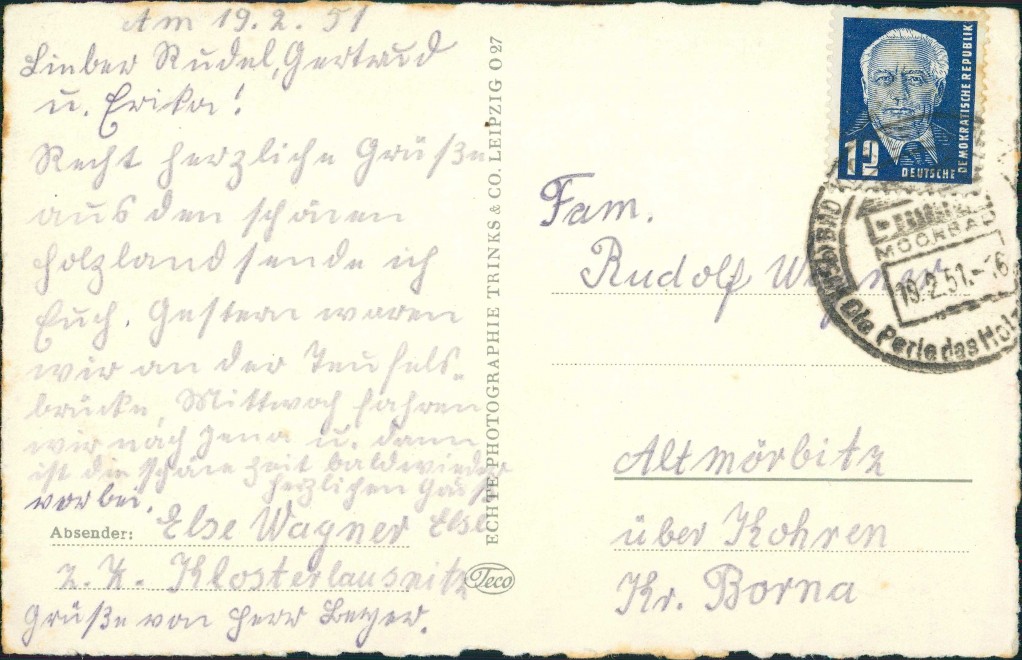 Am 19.2.51
Lieber Rudel, Gertraud
u. Erika!
Recht herzliche Grüße
aus den schönen
Holzland sende ich
Euch. Gestern waren
wir an der Teufels-
brücke, Mittwoch fahren
wir nach Jena u. dann
ist die schöne Zeit bald wieder
vorbei. herzlichen Gruß
Absender: Else Wagner Else
z. Z. Klosterlausnitz
Grüße von Herr Beyer.
ECHTE PHOTOGRAPHIE TRINKS & CO. LEIPZIG O 27
Teco
12
DEUTSCHE
DEMOKRATISCHE REPUBLIK
MOORBAD
19.2.51.-16
Die Perle des Holz
Fam.
Rudolf Wagner
Altmörbitz
über Kohren
Kr. Borna